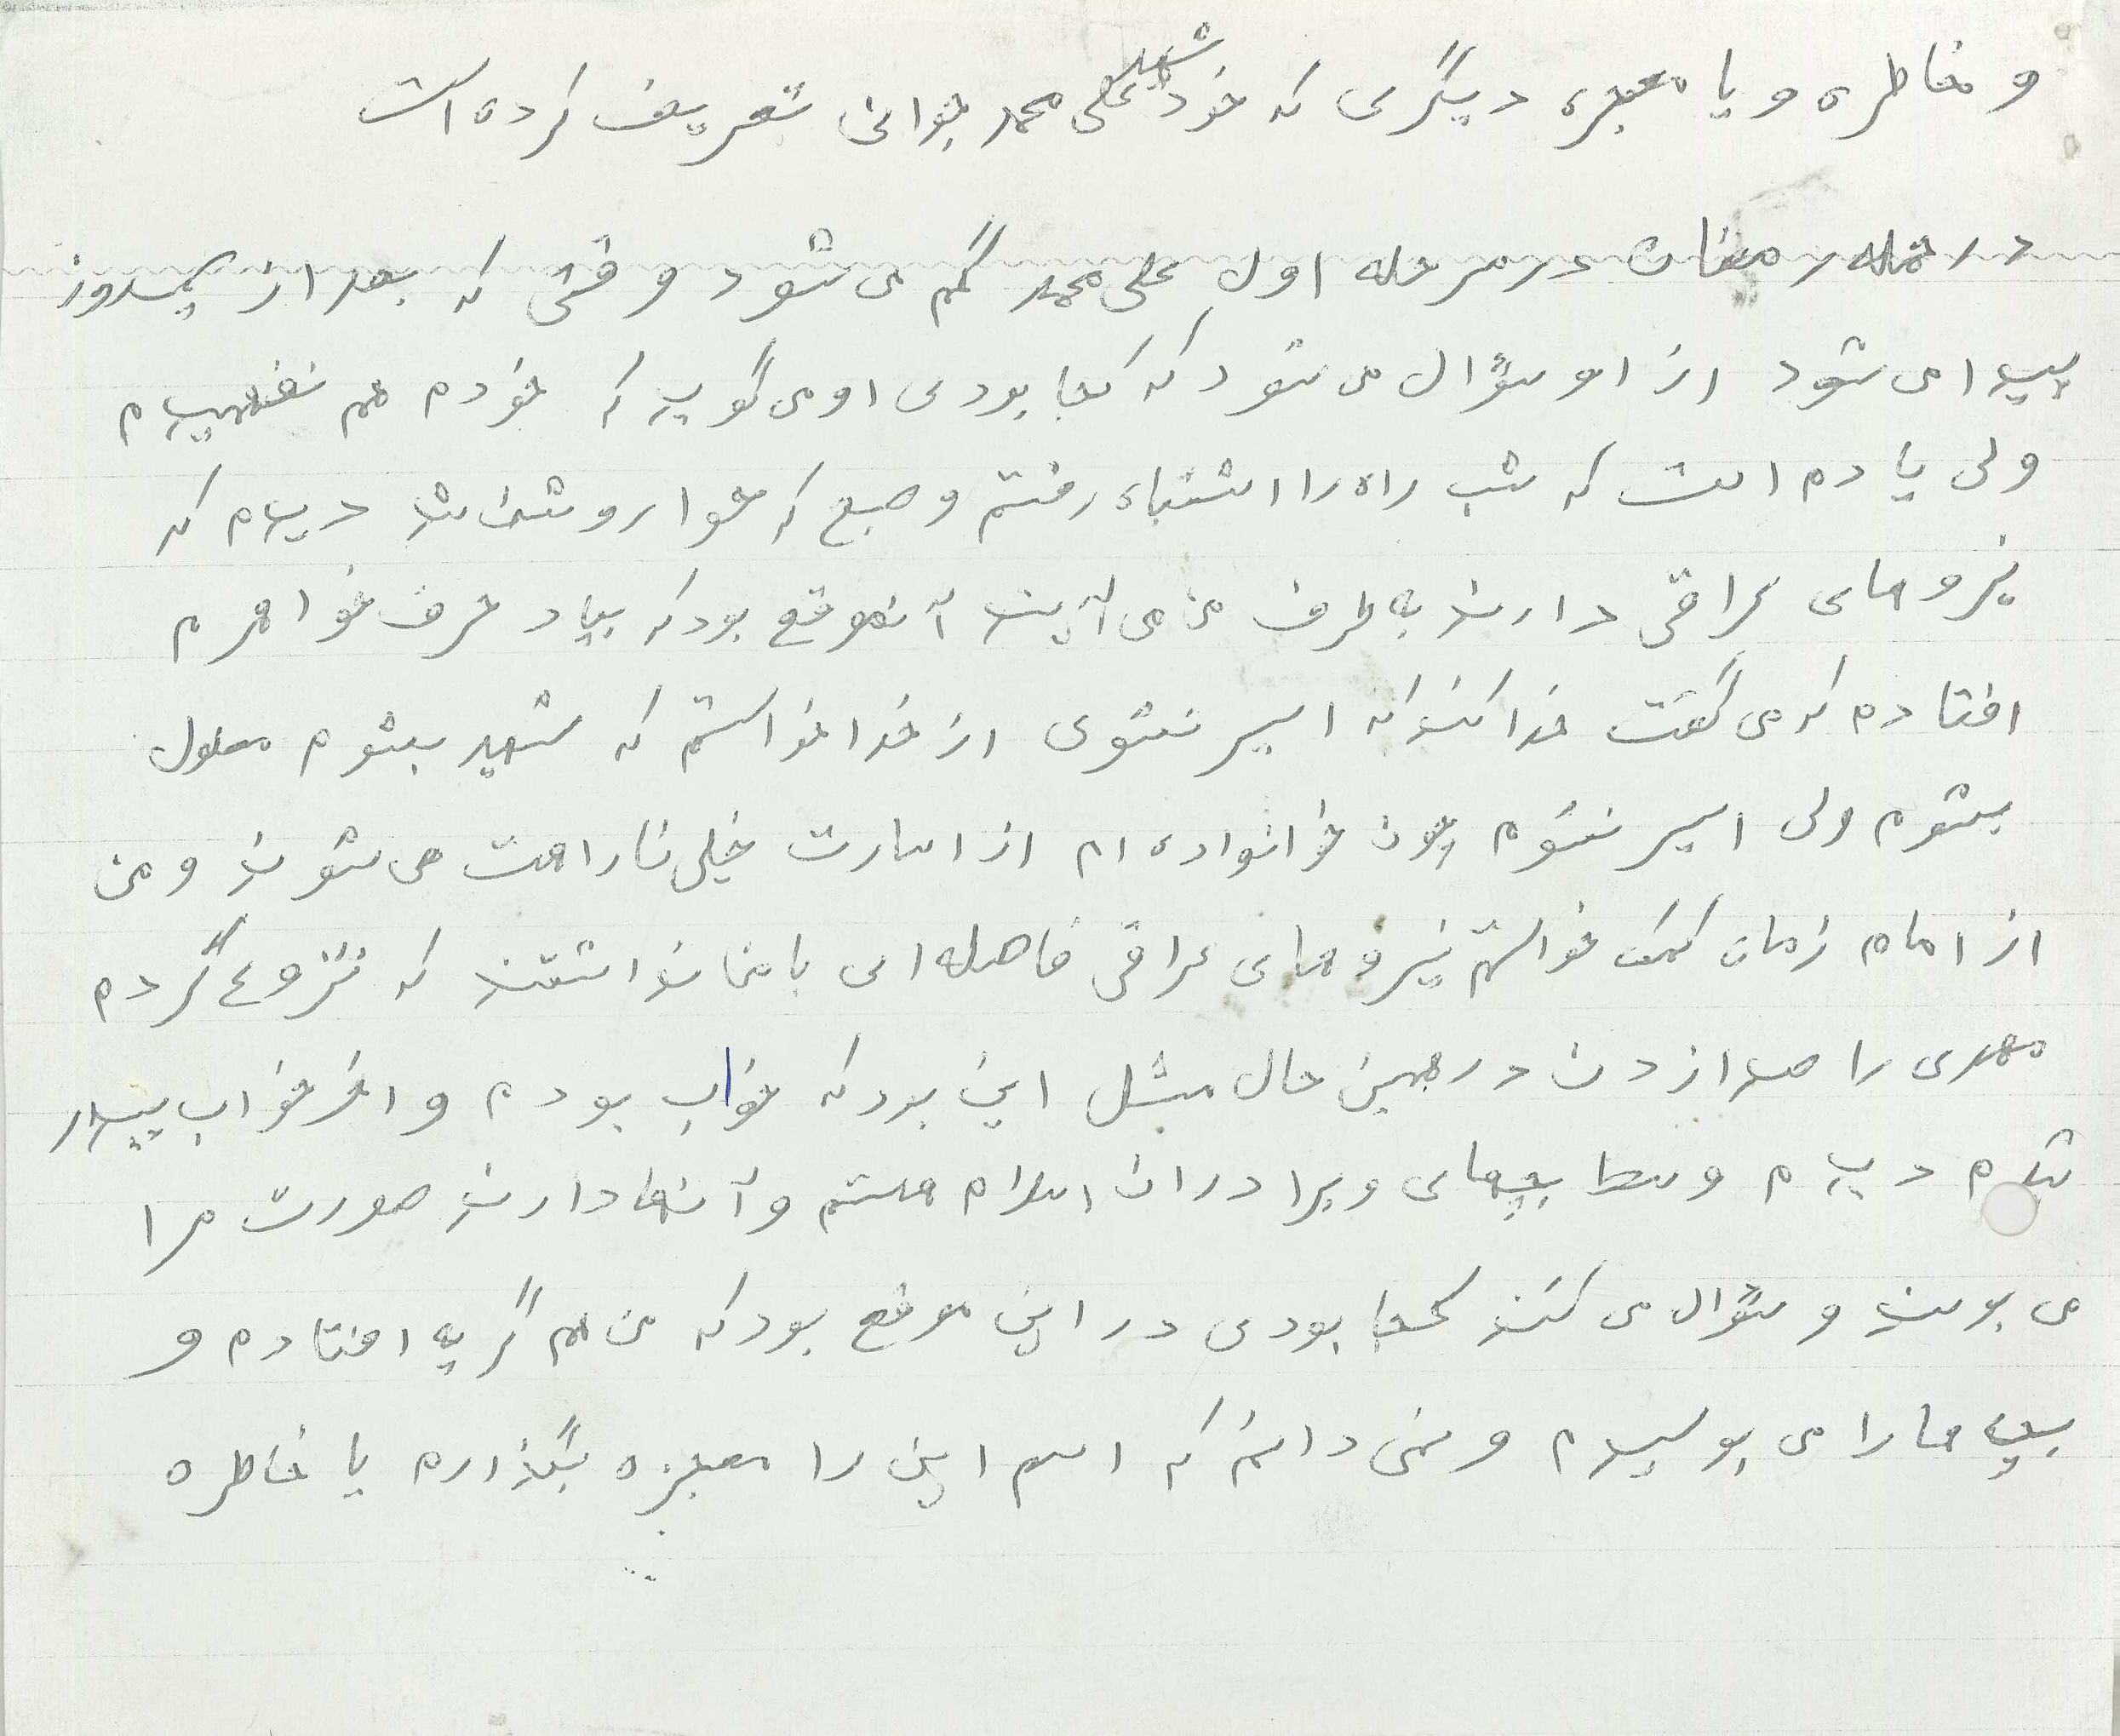 و خاطره و یا معجزه دیگری که خود شهید علی محمد جوانی تعریف کرده است
در حمله رمضان در مرحله اول علی محمد گم می شود وقتی که بعد از یکروز
پیدا می شود از او سؤال می شود که کجا بودی او می گوید که خودم هم نفهمیدم
ولی یادم است که شب راه را اشتباه رفتم و صبح که هوا روشن شد دیدم که
نیروهای عراقی دارند به طرف من می آیند آنموقع بود که بیاد حرف خواهرم
افتادم که می گفت خدا کند که اسیر نشوی از خدا خواستم که شهید بشوم معلول
بشوم ولی اسیر نشوم چون خانواده ام از اسارت خیلی ناراحت می شوند و من
از امام زمان کمک خواستم نیروهای عراقی فاصله ای با من نداشتند که شروع کردم
مهدی را صدا زدن در همین حال مثل این بود که خواب بودم و از خواب بیدار
شدم دیدم وسط بچهای و برادران اسلام هستم و آنها دارند صورت مرا
می بوسند و سؤال می کنند کجا بودی در این موقع بود که من هم گریه افتادم و
بچه ها را می بوسیدم و نمی دانم که اسم این را معجزه بگذارم یا خاطره